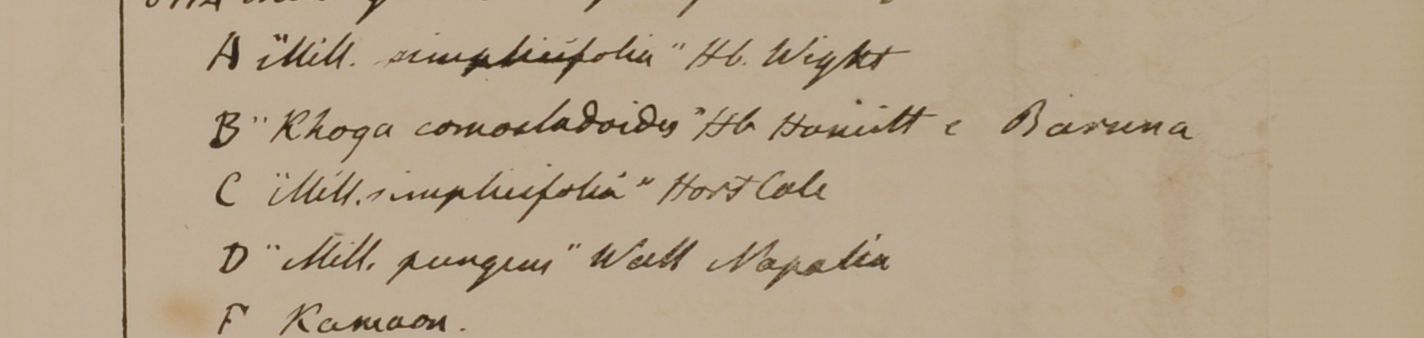 A "Mill. simplicifolia" Hb. Wight
B "Rhoga comocladoides" Hb Hamilt e Baruna
C "Mill. simplicifolia" Hort Calc
D "Mill. pungens" Wall Napalia
F Kamaon.